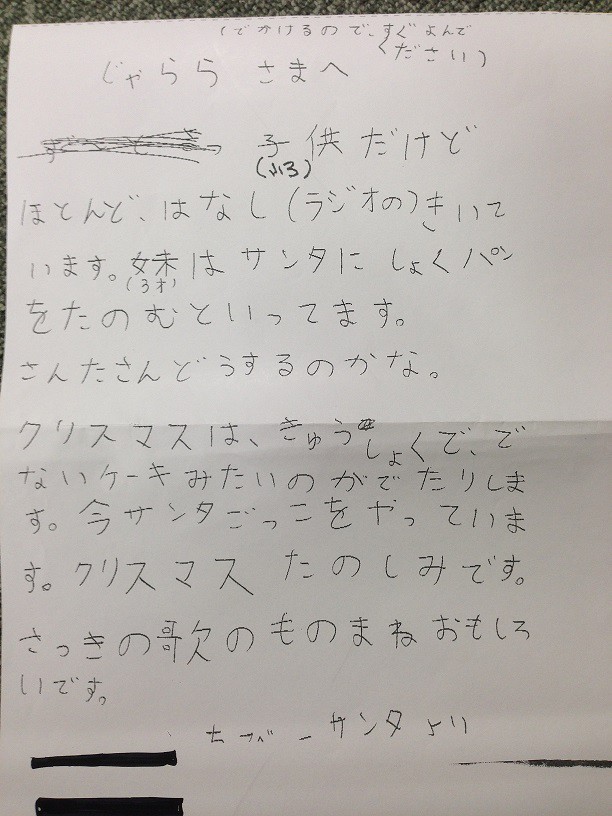 (でかけるので、すぐよんで
ください)
じゃらら さまへ
子供だけど
ほとんど、はなし(ラジオの)きいて
います。妹はサンタにしょくパン
(3才)
をたのむといってます。
さんたさんどうするのかな。
クリスマスは、きゅうしょくで、で
ないケーキみたいのがでたりしま
す。今サンタごっこをやっていま
す。クリスマス たのしみです。
さっきの歌のものまねおもしろ
いです。
サンタより